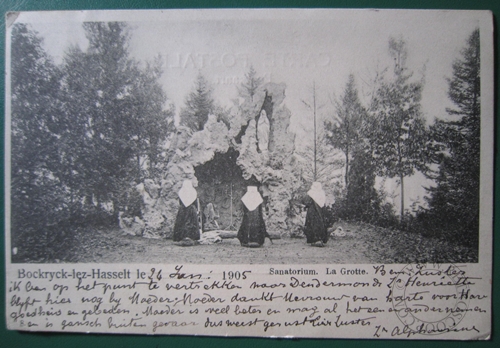 Bockryck-lez-Hasselt le 26 Jan: 1905 Sanatorium. La Grotte. Bem. Zuster
ik ben op het punt te vertrekken naar Dendermonde Zr Henriette
blyft hier nog by Moeder. Moeder dankt Mevrouw van harte voor Har
goedheid en gebeden. Moeder is veel beter en mag al het een en ander nemen
en is gansch buiten gevaar. dus weest gerust lieve Zuster
Zr Alphonsine